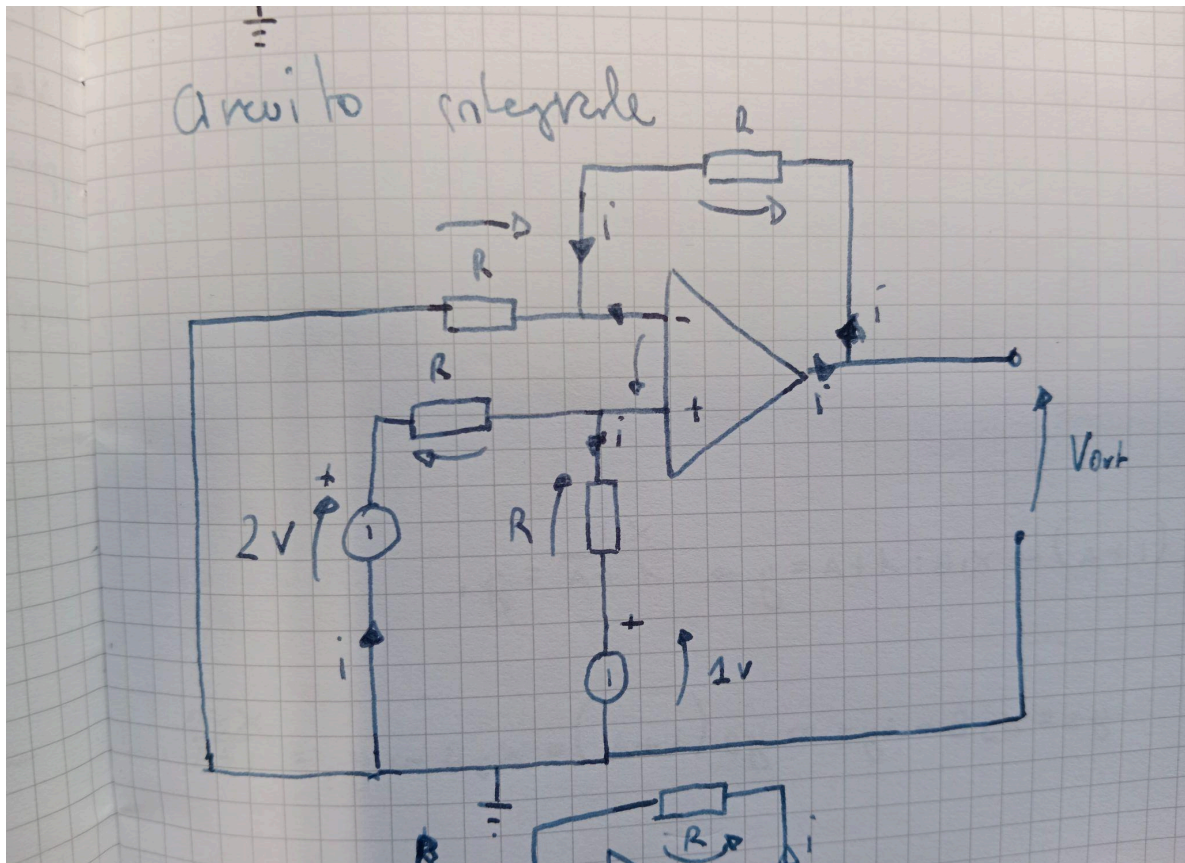 Circuito integrale
R
i
R
-
i
R
+
i
i
+
2V
R
Vout
+
i
1V
R
i